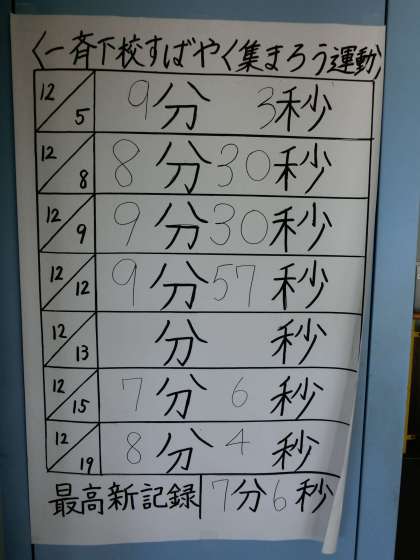 〈一斉下校すばやく集まろう運動〉
12/5 9分 3秒
12/8 8分30秒
12/9 9分30秒
12/12 9分57秒
12/13 分 秒
12/15 7分 6秒
12/19 8分 4秒
最高新記録 7分6秒